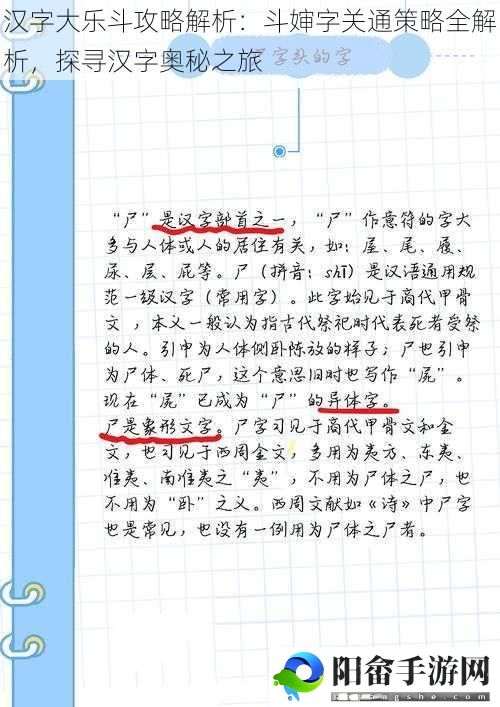 汉字大乐斗攻略解析：斗婶字关通策略全解
析，探寻汉字奥秘之旅
尸字头的字
“尸”是汉字部首之一，“尸”作意符的字大
多与人体或人的居住有关，如：屋、尾、履、
尿、层、屁等。尸（拼音：shī）是汉语通用规
范一级汉字（常用字）。此字始见于商代甲骨
文，本义一般认为指古代祭祀时代表死者受祭
的人。引申为人体侧卧陈放的样子；尸也引申
为尸体、死尸，这个意思旧时也写作“屍”。
现在“屍”已成为“尸”的异体字。
尸是象形文字。尸字习见于商代甲骨文和金
文，也习见于西周金文，多用为夷方、东夷、
淮夷、南淮夷之“夷”，不用为尸体之尸，也
不用为“卧”之义。西周文献如《诗》中尸字
也是常见，也没有一例用为尸体之尸者。
阳畲手游网